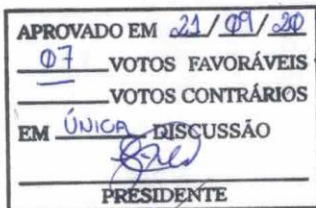 APROVADO EM 21/09/20
07 VOTOS FAVORÁVEIS
VOTOS CONTRÁRIOS
EM ÚNICA DISCUSSÃO
PRESIDENTE